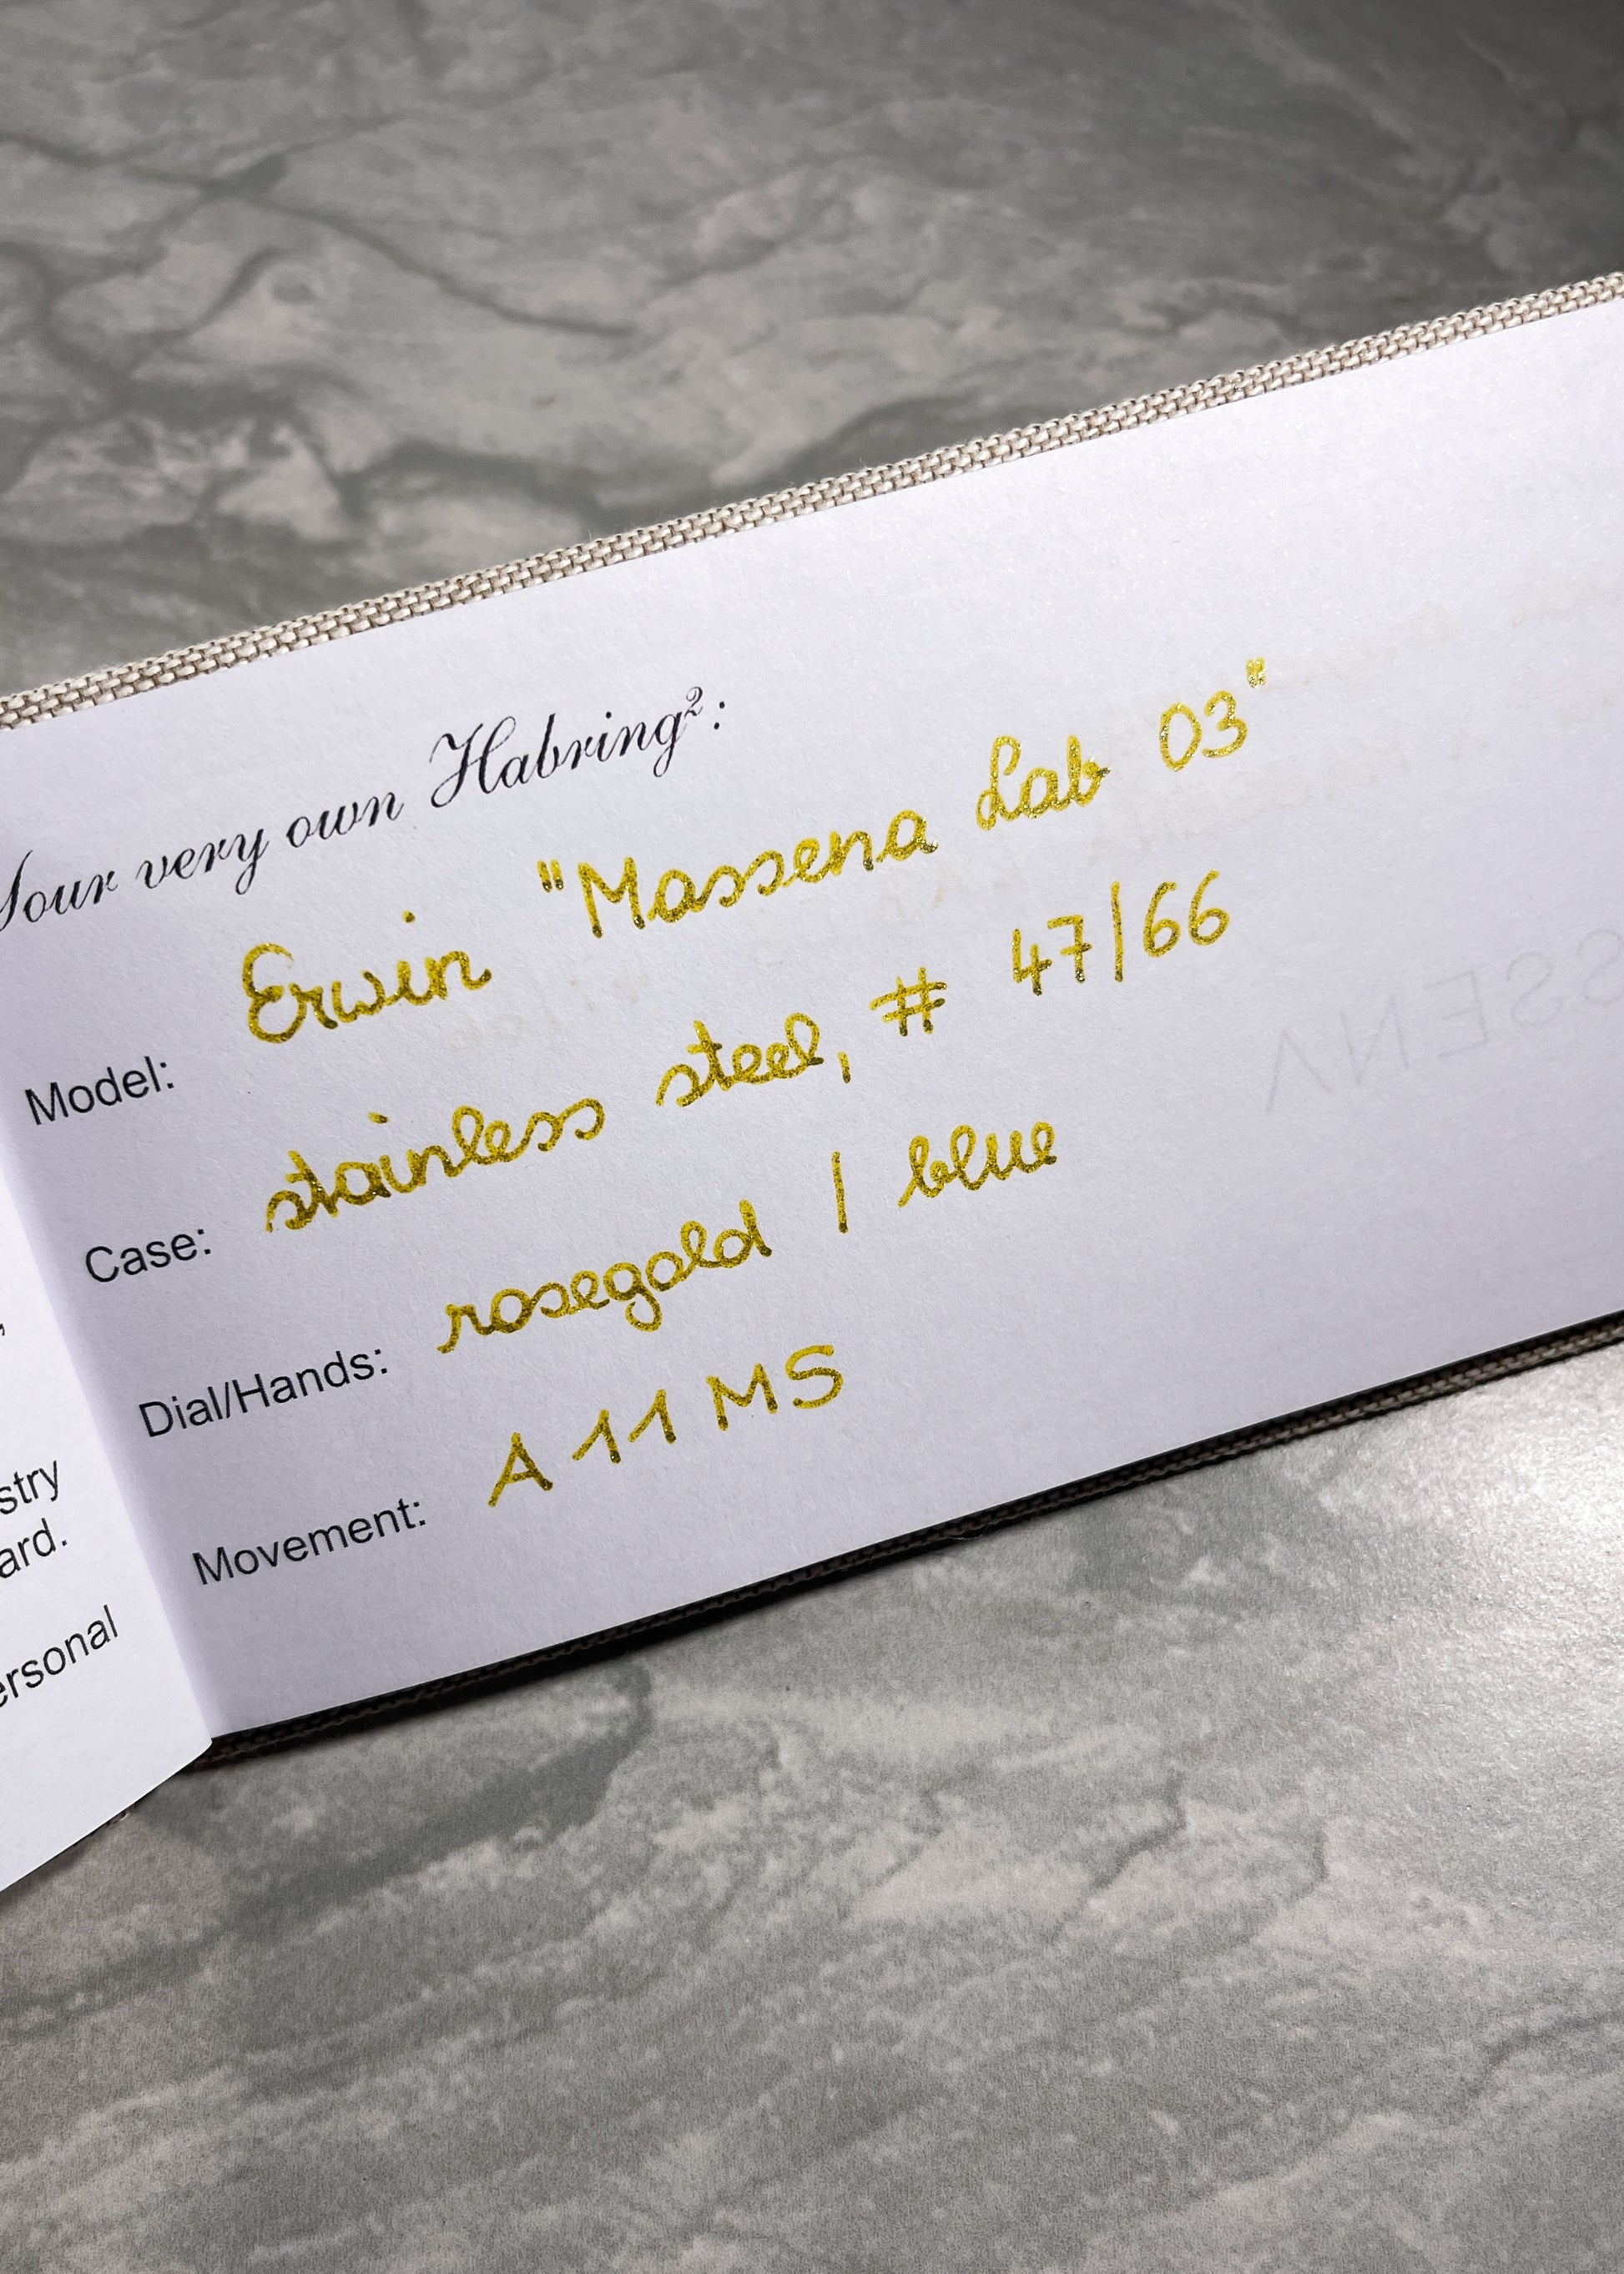 Your very own Habring²:
Model: Erwin "Massena Lab 03"
Case: stainless steel, # 47/66
Dial/Hands: rosegold / blue
Movement: A 11 MS